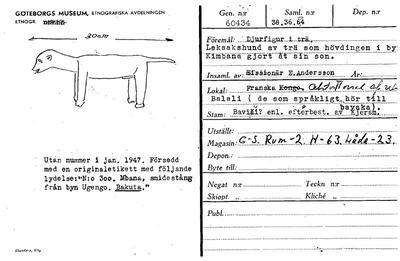 GÖTEBORGS MUSEUM, ETNOGRAFISKA AVDELNINGEN
ETNOGR.
30cm
Utan nummer i jan. 1947. Försedd
med en originaletikett med följande
lydelse:"N:o 300. Mbana, smidestång
från byn Ugengo. Bakuta."
Gen. n:r Saml. n:r Dep. n:r
60434 38.36.64
Föremål: Djurfigur i trä.
Leksakshund av trä som hövdingen i by
Kimbana gjort åt sin son.
Insaml. av: Missionär E.Andersson Ar:
Lokal: Franska Kongo.
Balali ( de som språkligt hör till
Stam: enl. efterbest. av Kjersm.
Utställt:
Magasin: G-S. Rum-2. H-63. Låda-23.
Depon.:
Byte till:
Negat n:r Teckn n:r
Skiopt. Kliché
Publ.